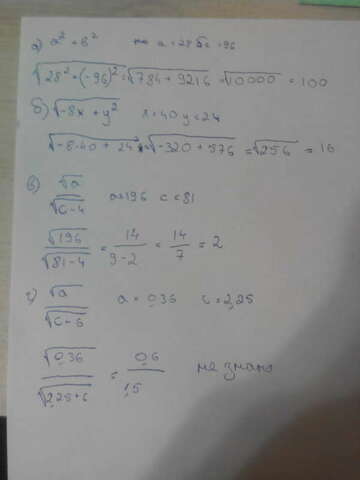 а) a² + b² a = 28 b = -96
√28² + (-96)² = √784 + 9216 = √10000 = 100
б) √-8x + y² x = 40 y = 24
√-8·40 + 24² = √-320 + 576 = √256 = 16
в) √a / √c-4 a=196 c=81
√196 / √81-4 = 14 / 9-2 = 14 / 7 = 2
г) √a / √c-6 a = 0,36 c = 2,25
√0,36 / √2,25+6 = 0,6 / 1,5 не знаю